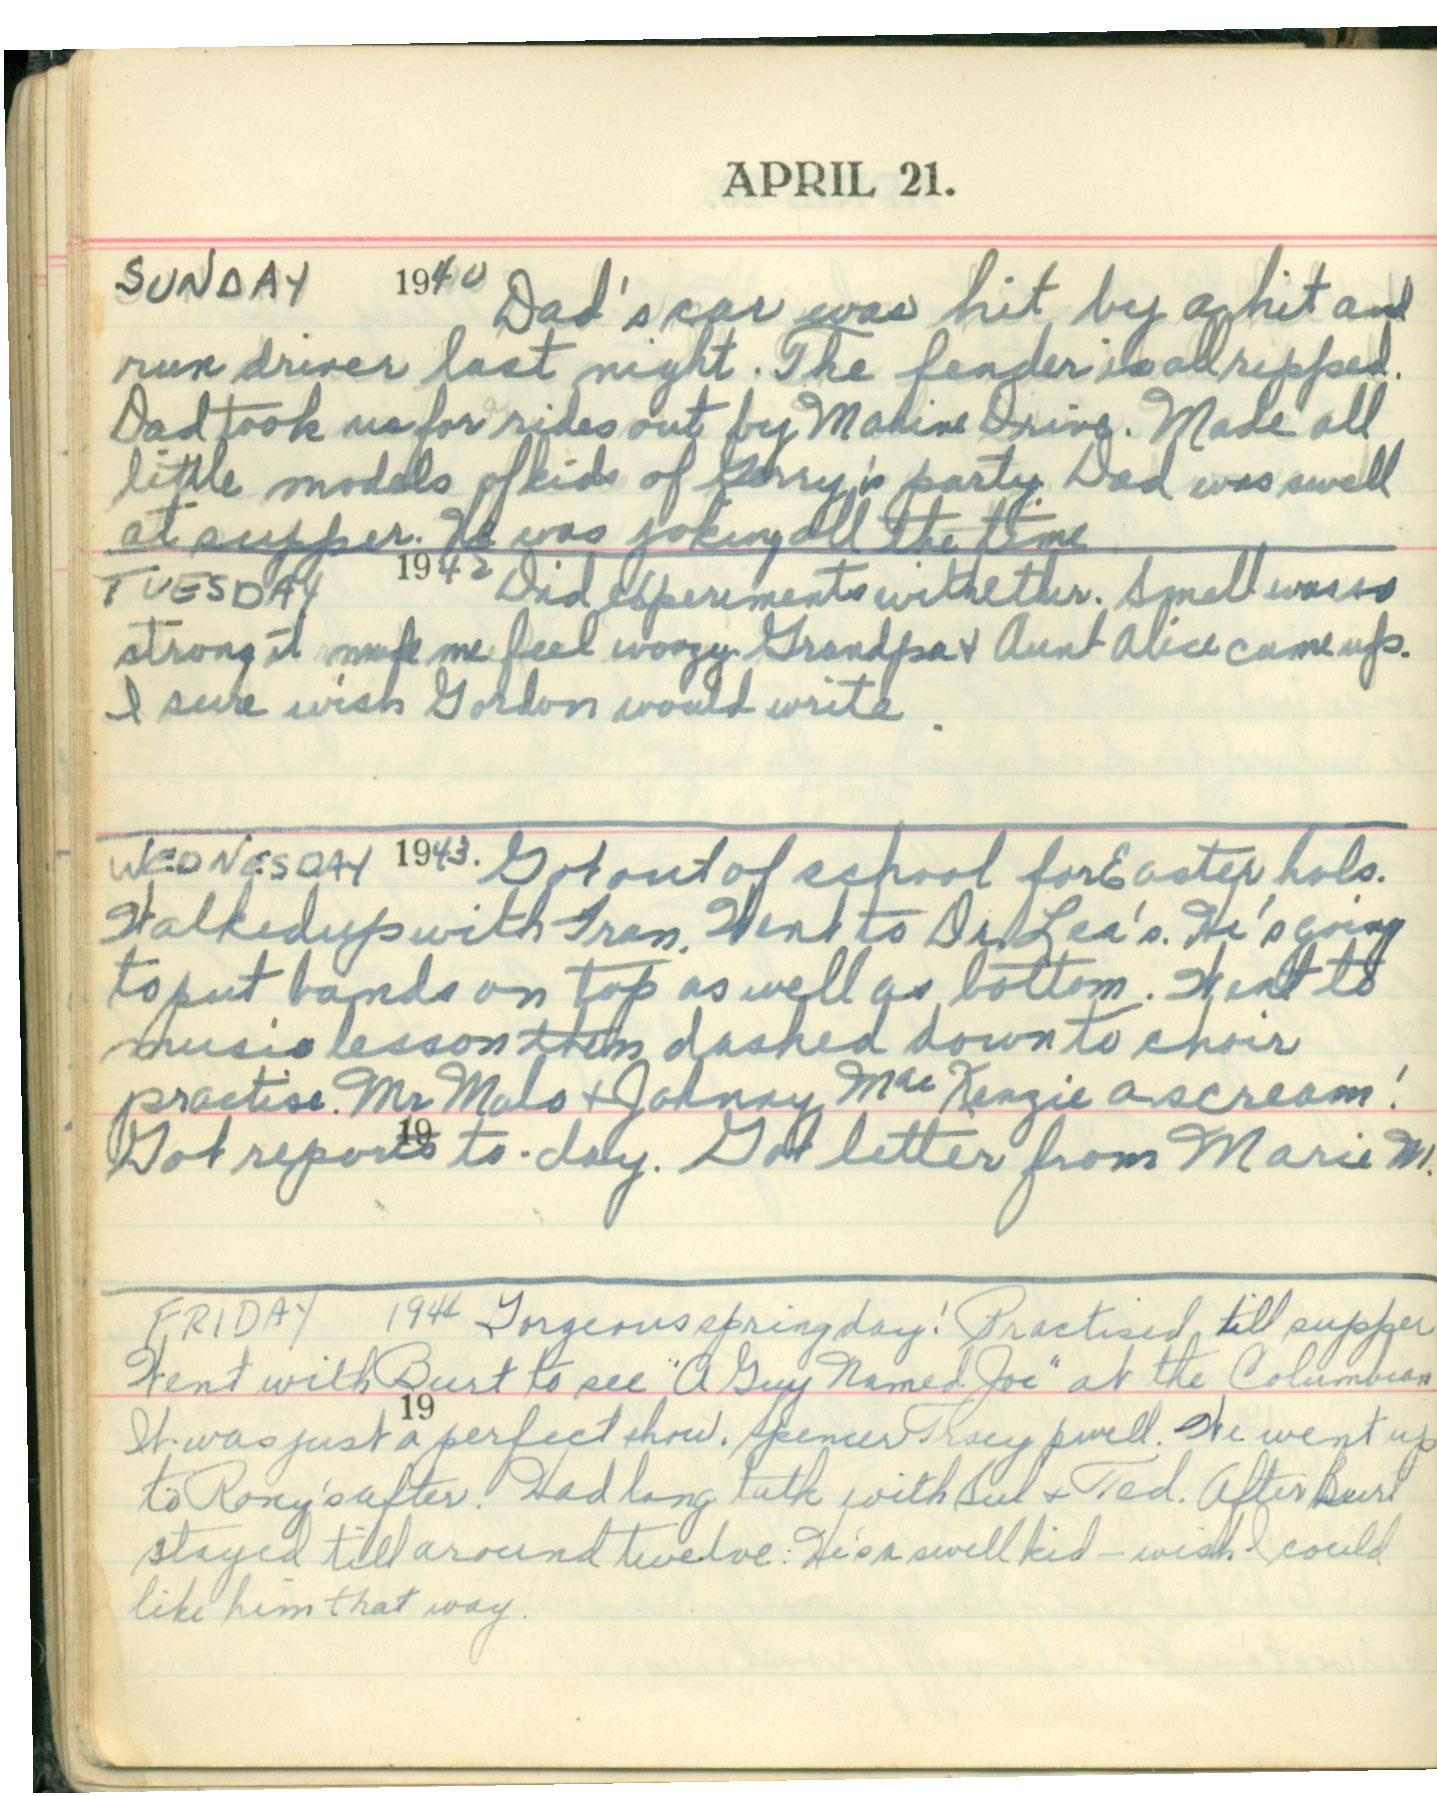 APRIL 21.
SUNDAY 1940 Dad's car was hit by a hit and
run driver last night. The fender is all ripped.
Dad took us for rides out by Marine Drive. Made all
little models of kids of Gerry's party. Dad was swell
at supper. He was joking all the time
TUESDAY 1942 Did experiments with ether. Smell was so
strong it made me feel woozy. Grandpa & Aunt Alice came up.
I sure wish Gordon would write.
WEDNESDAY 1943. Got out of school for Easter hols.
Walked up with Fran. Went to Dr. Lea's. He's going
to put bands on top as well as bottom. Went to
music lesson then dashed down to choir
practise. Mr Malo & Johnny MacKenzie a scream!
19
Got reports to-day. Got letter from Marie M.
FRIDAY 1944 Gorgeous spring day! Practised till supper
Went with Burt to see "A Guy Named Joe" at the Columbian
19
It was just a perfect show. Spencer Tracy swell. We went up
to Roxy's after. Had long talk with & Ted. After Burt
stayed till around twelve. He's a swell kid - wish I could
like him that way.